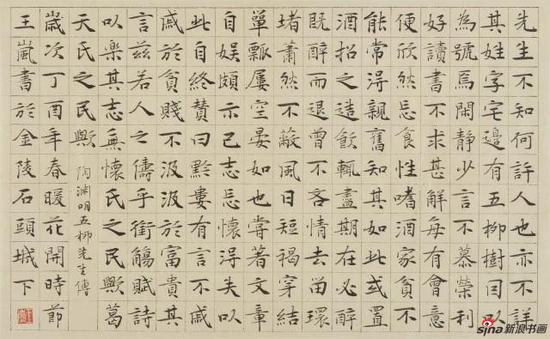 先生不知何許人也亦不詳
其姓字宅邊有五柳樹因以
為號焉閑靜少言不慕榮利
好讀書不求甚解每有會意
便欣然忘食性嗜酒家貧不
能常得親舊知其如此或置
酒招之造飲輒盡期在必醉
既醉而退曾不吝情去留環
堵蕭然不蔽風日短褐穿結
簞瓢屢空晏如也嘗著文章
自娛頗示己志忘懷得失以
此自終贊曰黔婁有言不戚
戚於貧賤不汲汲於富貴其
言茲若人之儔乎銜觴賦詩
以樂其志無懷氏之民歟葛
天氏之民歟 陶淵明五柳先生傳
歲次丁酉年春暖花開時節
王嵐書於金陵石頭城下
sina新浪书画